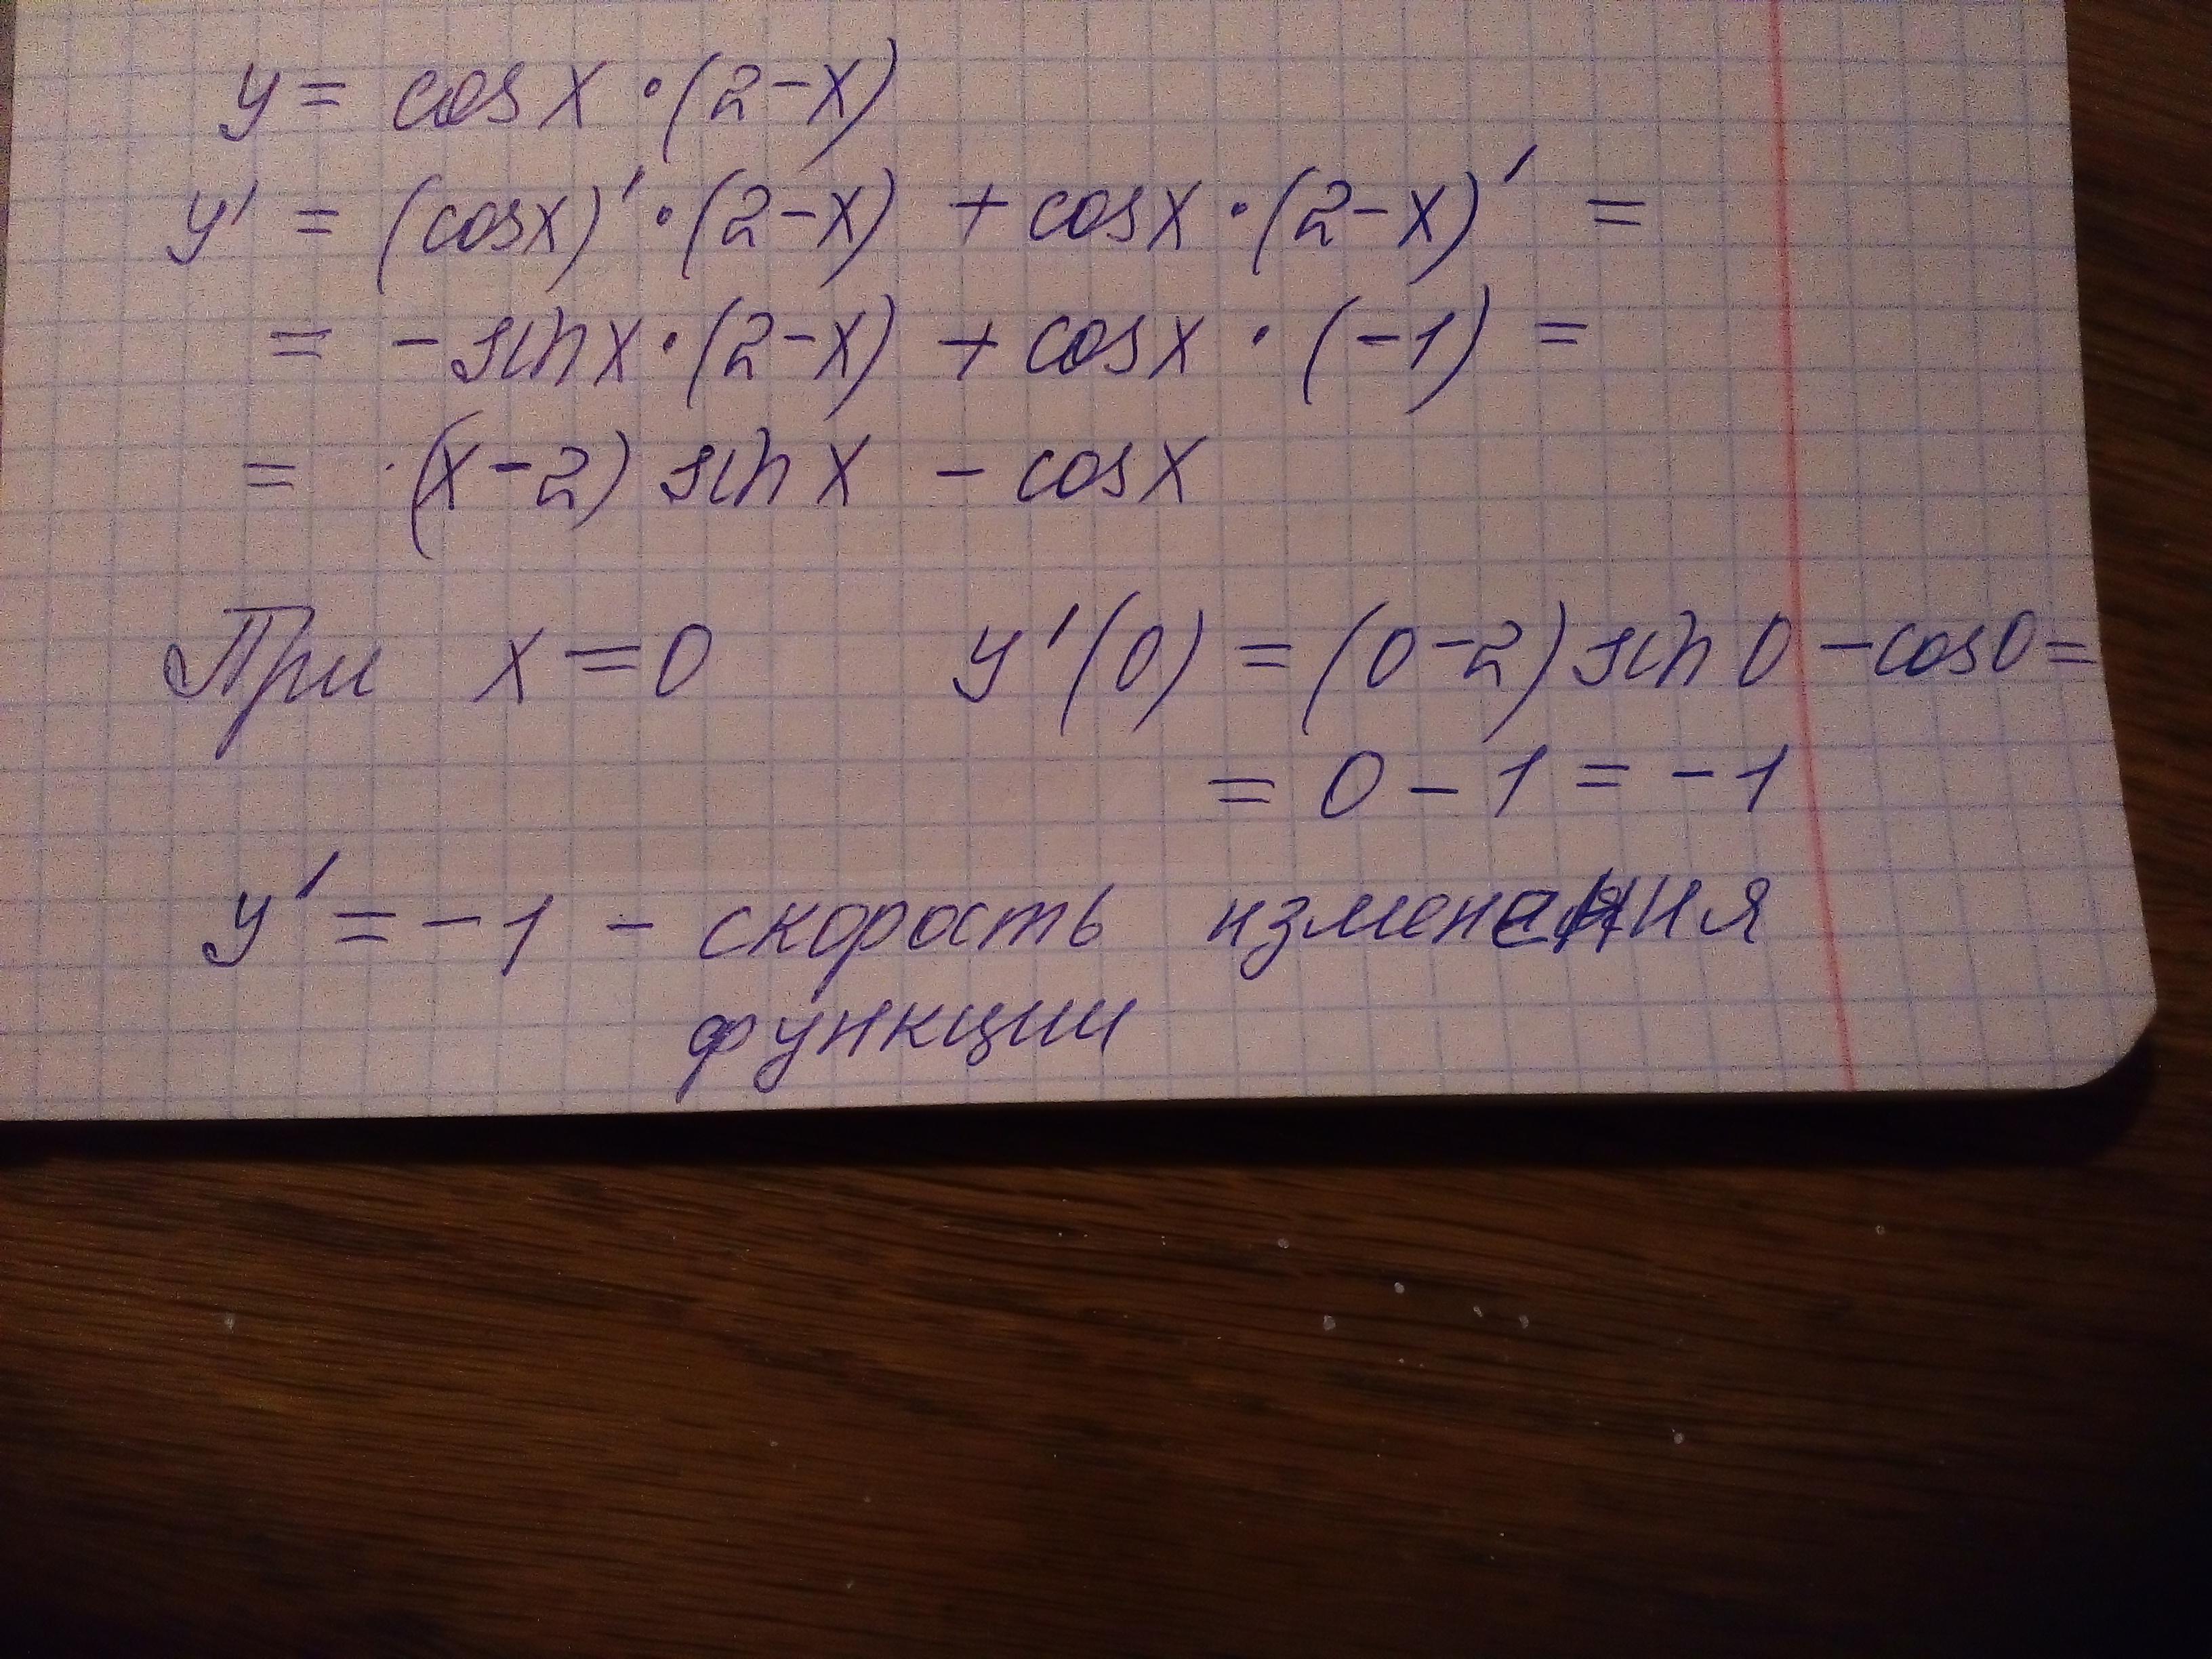 y = cos x · (2 - x)
y' = (cos x)' · (2 - x) + cos x · (2 - x)' =
= - sin x · (2 - x) + cos x · (-1) =
= (x - 2) sin x - cos x
При x = 0 y'(0) = (0 - 2) sin 0 - cos 0 =
= 0 - 1 = -1
y' = -1 - скорость изменения
функции